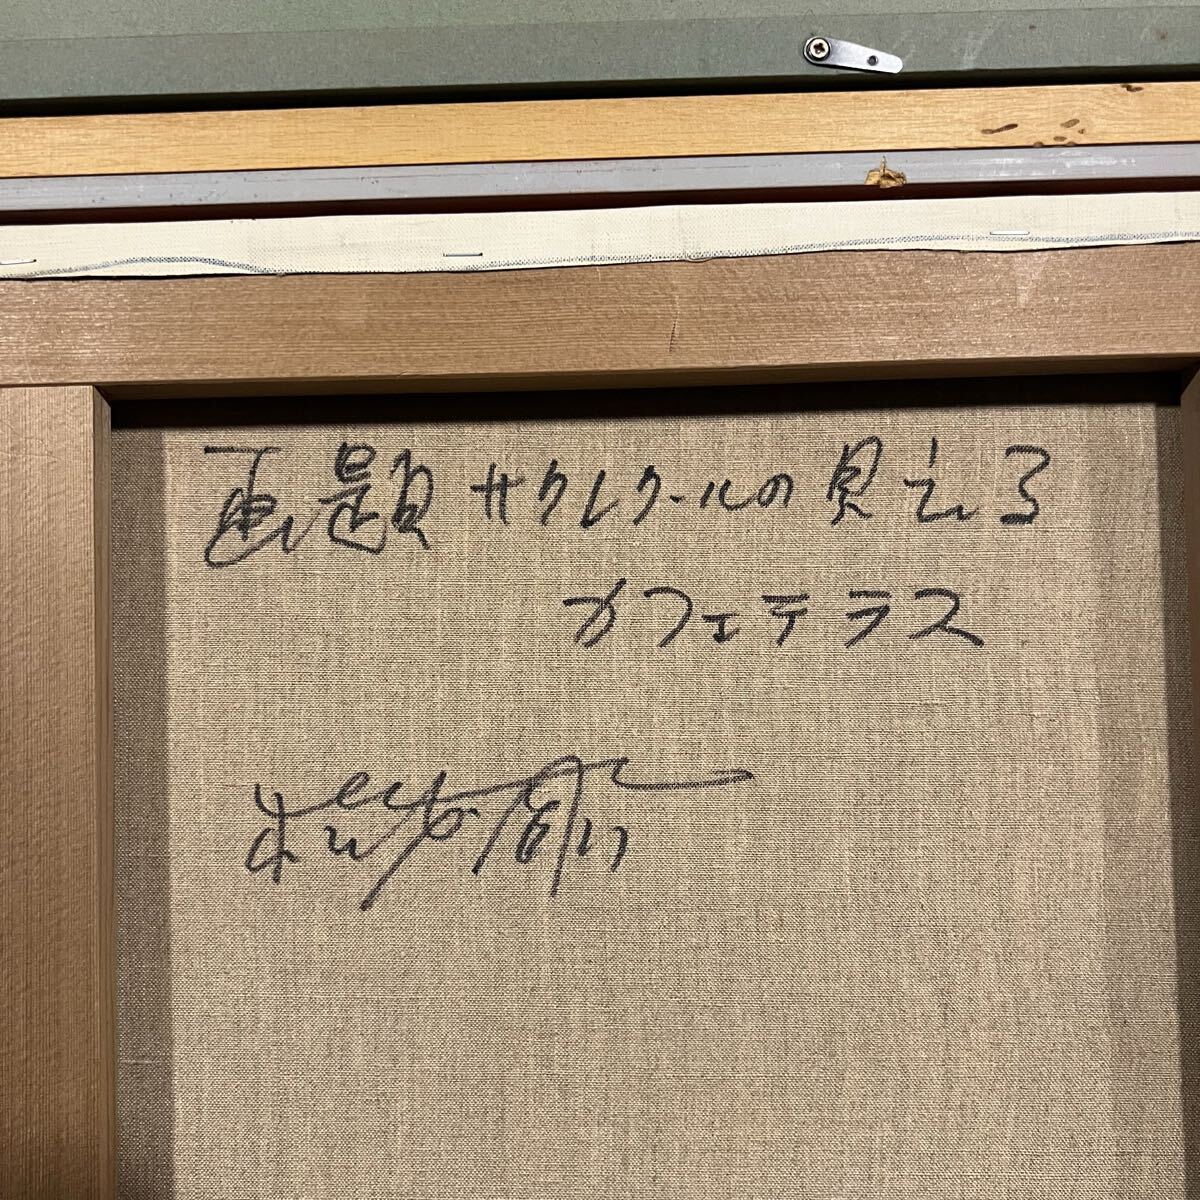 画題 サクレクールの見える
カフェテラス